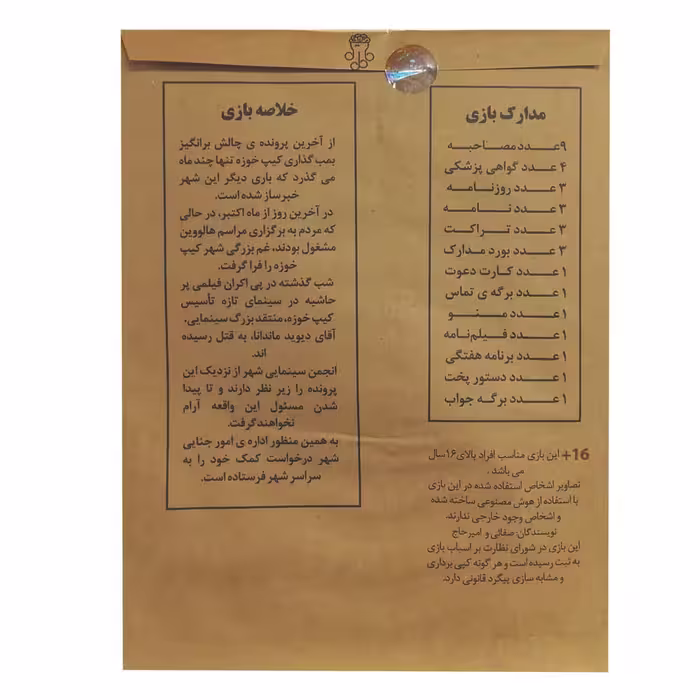 مدارک بازی
۹ عدد مصاحبه
۴ عدد گواهی پزشکی
۳ عدد روزنامه
۳ عدد نامه
۳ عدد تراکت
۳ عدد بورد مدارک
۱ عدد کارت دعوت
۱ عدد برگه ی تماس
۱ عدد منو
۱ عدد فیلم‌نامه
۱ عدد برنامه هفتگی
۱ عدد دستور پخت
۱ عدد برگه جواب
+16 این بازی مناسب افراد بالای ۱۶ سال
می باشد .
تصاویر اشخاص استفاده شده در این بازی
با استفاده از هوش مصنوعی ساخته شده
و اشخاص وجود خارجی ندارند.
نویسندگان: صفائی و امیرحاج
این بازی در شورای نظارت بر اسباب بازی
به ثبت رسیده است و هر گونه کپی برداری
و مشابه سازی پیگرد قانونی دارد.
خلاصه بازی
از آخرین پرونده ی چالش برانگیز
بمب گذاری کیپ خوزه تنها چند ماه
می گذرد که باری دیگر این شهر
خبرساز شده است.
در آخرین روز از ماه اکتبر، در حالی
که مردم به برگزاری مراسم هالووین
مشغول بودند، غم بزرگی شهر کیپ
خوزه را فرا گرفت.
شب گذشته در پی اکران فیلمی پر
حاشیه در سینمای تازه تأسیس
کیپ خوزه، منتقد بزرگ سینمایی،
آقای دیوید ماندانا، به قتل رسیده
اند.
انجمن سینمایی شهر از نزدیک این
پرونده را زیر نظر دارند و تا پیدا
شدن مسئول این واقعه آرام
نخواهند گرفت.
به همین منظور اداره ی امور جنایی
شهر درخواست کمک خود را به
سراسر شهر فرستاده است.